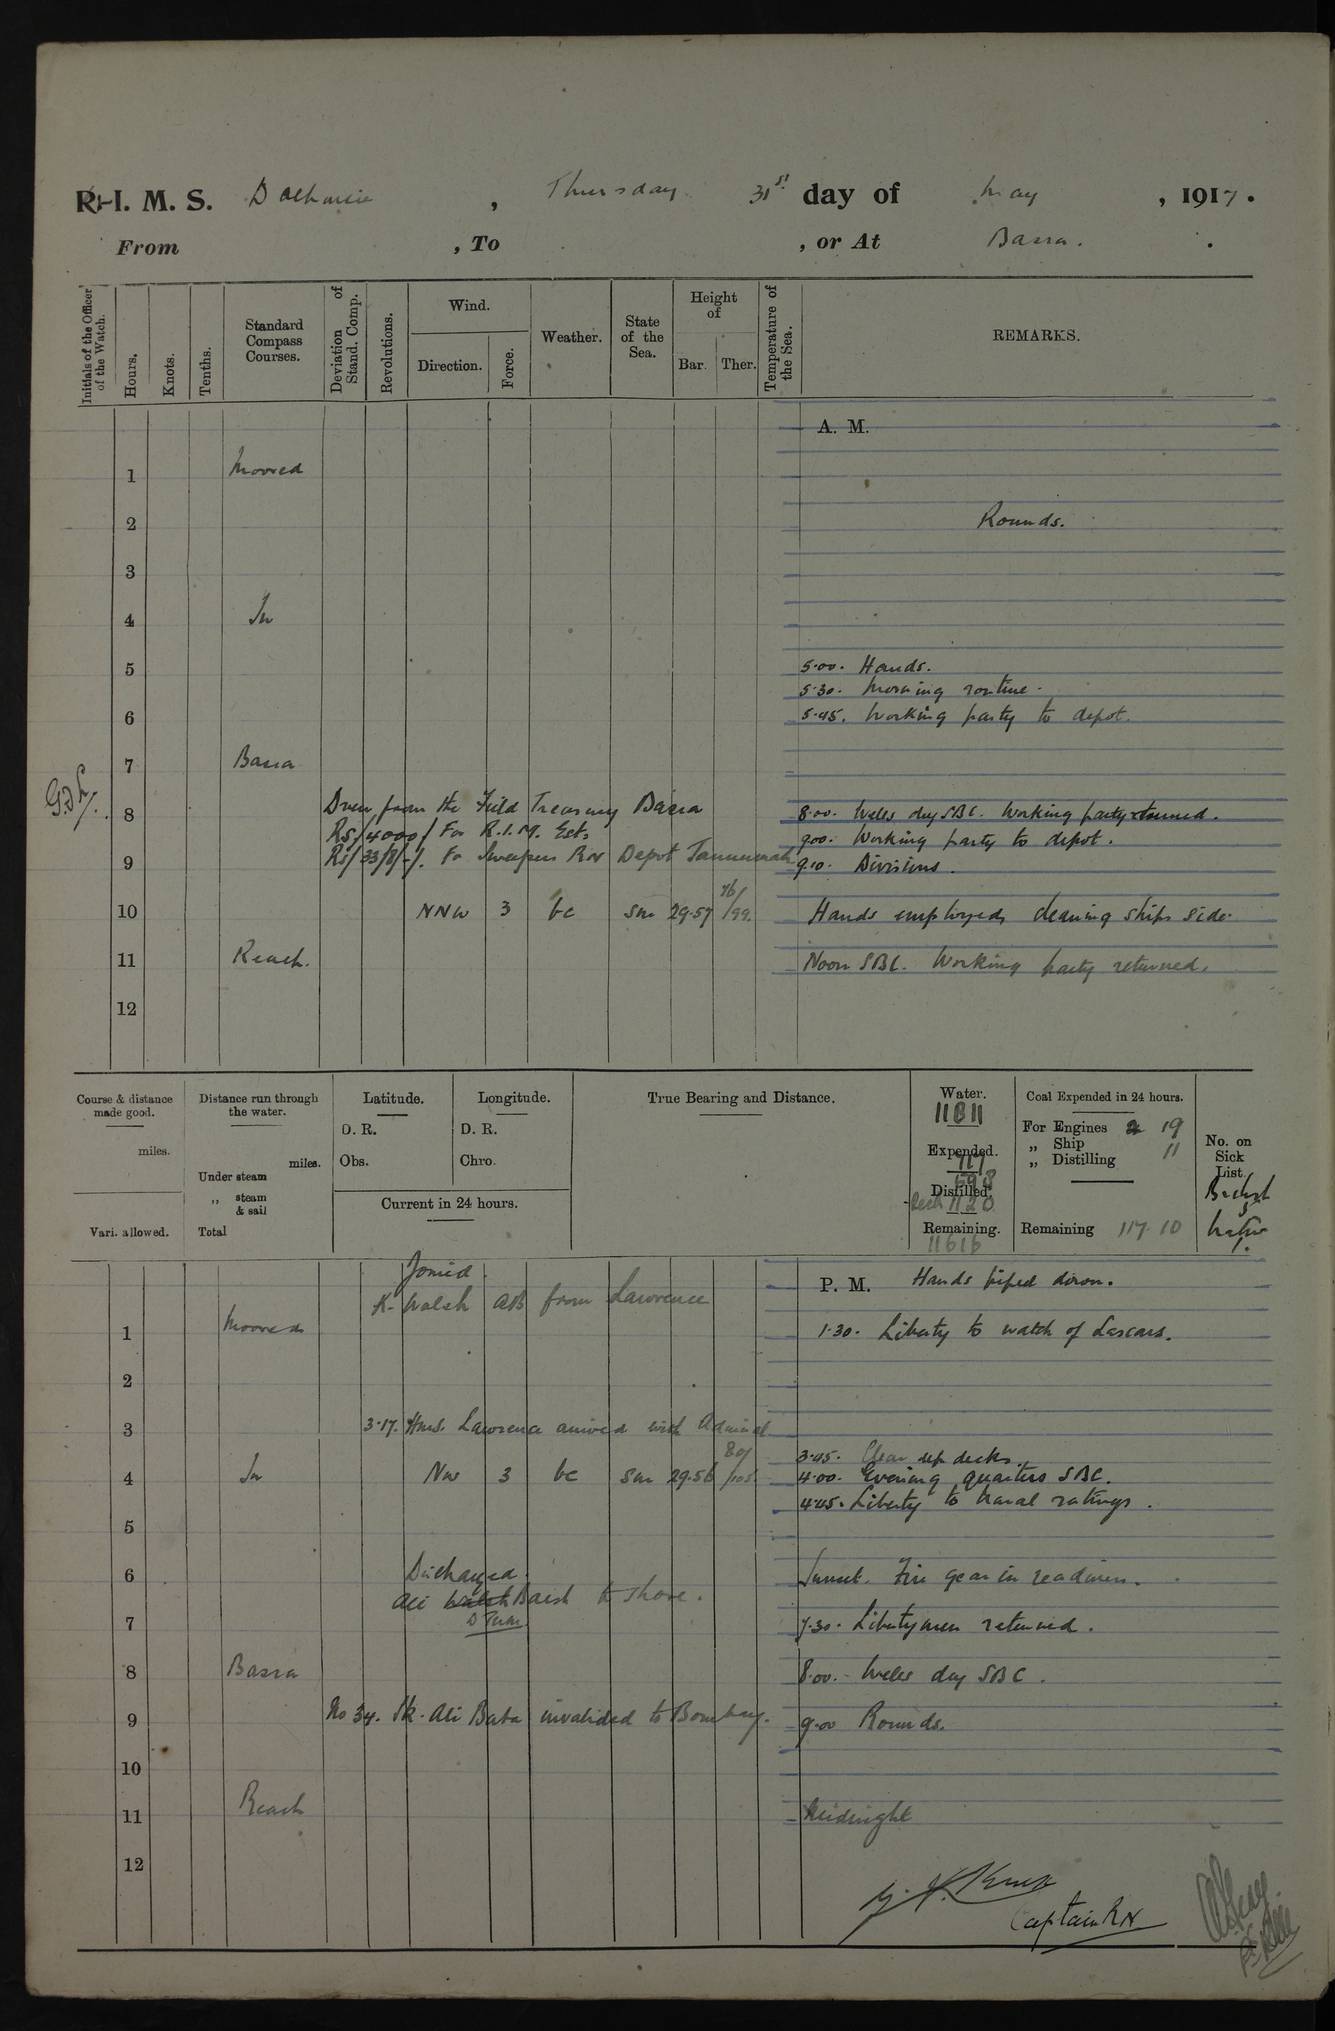 R. I. M. S. Dalhousie , Thursday 31st day of May , 1917.
From , To , or At Basra.
Initials of the Officer of the Watch.
Hours.
Knots.
Tenths.
Standard Compass Courses.
Deviation of Stand. Comp.
Revolutions.
Wind.
Direction.
Force.
Weather.
State of the Sea.
Height of
Bar.
Ther.
Temperature of the Sea.
REMARKS.
A. M.
1 Moored
2 Rounds.
3
4 In
5 5.00. Hands.
5.30. Morning routine.
6 5.45. Working party to depot.
7 Basra
Drew from the Field Treasury Basra
8 8.00. Weler day SBC. Working party returned.
Rs/4000/ For R.I.M. Ests
9.00. Working party to depot.
9 Rs/33/8/-/. Fo Sweepers RN Depot Tanumah
9.10. Divisions.
10 NNW 3 bc Sm 29.57 76/99. Hands employed cleaning ships side.
11 Reach. Noon SBC. Working party returned.
12
Course & distance made good.
miles.
Vari. allowed.
Distance run through the water.
miles.
Under steam
„ steam & sail
Total
Latitude.
D. R.
Obs.
Longitude.
D. R.
Chro.
Current in 24 hours.
True Bearing and Distance.
Water.
11811
Expended.
717
598
Distilled.
Recd 1120
Remaining.
11616
Coal Expended in 24 hours.
For Engines 19
„ Ship 11
„ Distilling
Remaining 117.10
No. on Sick List.
5
Native
1.
Joined.
P. M. Hands piped down.
K. Walsh AB from Lawrence
1 Moored 1.30. Liberty to watch of Lascars.
2
3 3.17. Hms. Lawrence arrived with Admiral
3.45. Clear up decks.
4 In NW 3 bc Sm 29.56 80/105 4.00. Evening quarters SBC.
4.45. Liberty to Naval ratings.
5
6 Discharged Sunset. Fire gear in readiness.
Ali Walsh Baksh to shore.
7 7.30. Liberty men returned.
8 Basra 8.00. Weler day SBC.
9 No 34. Sk. Ali Baba invalided to Bombay. 9.00 Rounds.
10
11 Reach Midnight
12
Captain RN